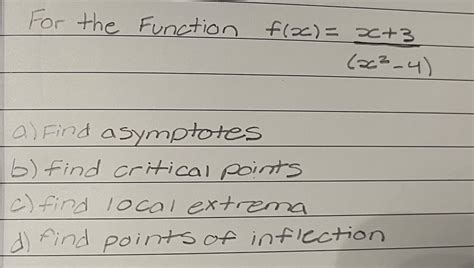 For the Function f(x) = x+3
(x²-4)
a) Find asymptotes
b) find critical points
c) find local extrema
d) find points of inflection